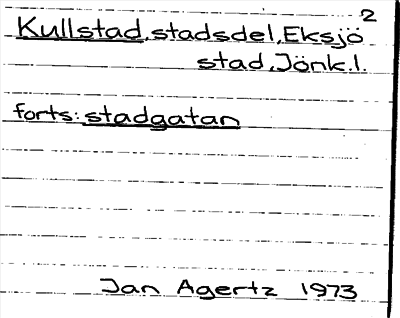 2
Kullstad, stadsdel, Eksjö
stad, Jönk.l.
forts: stadgatan
Jan Agertz 1973